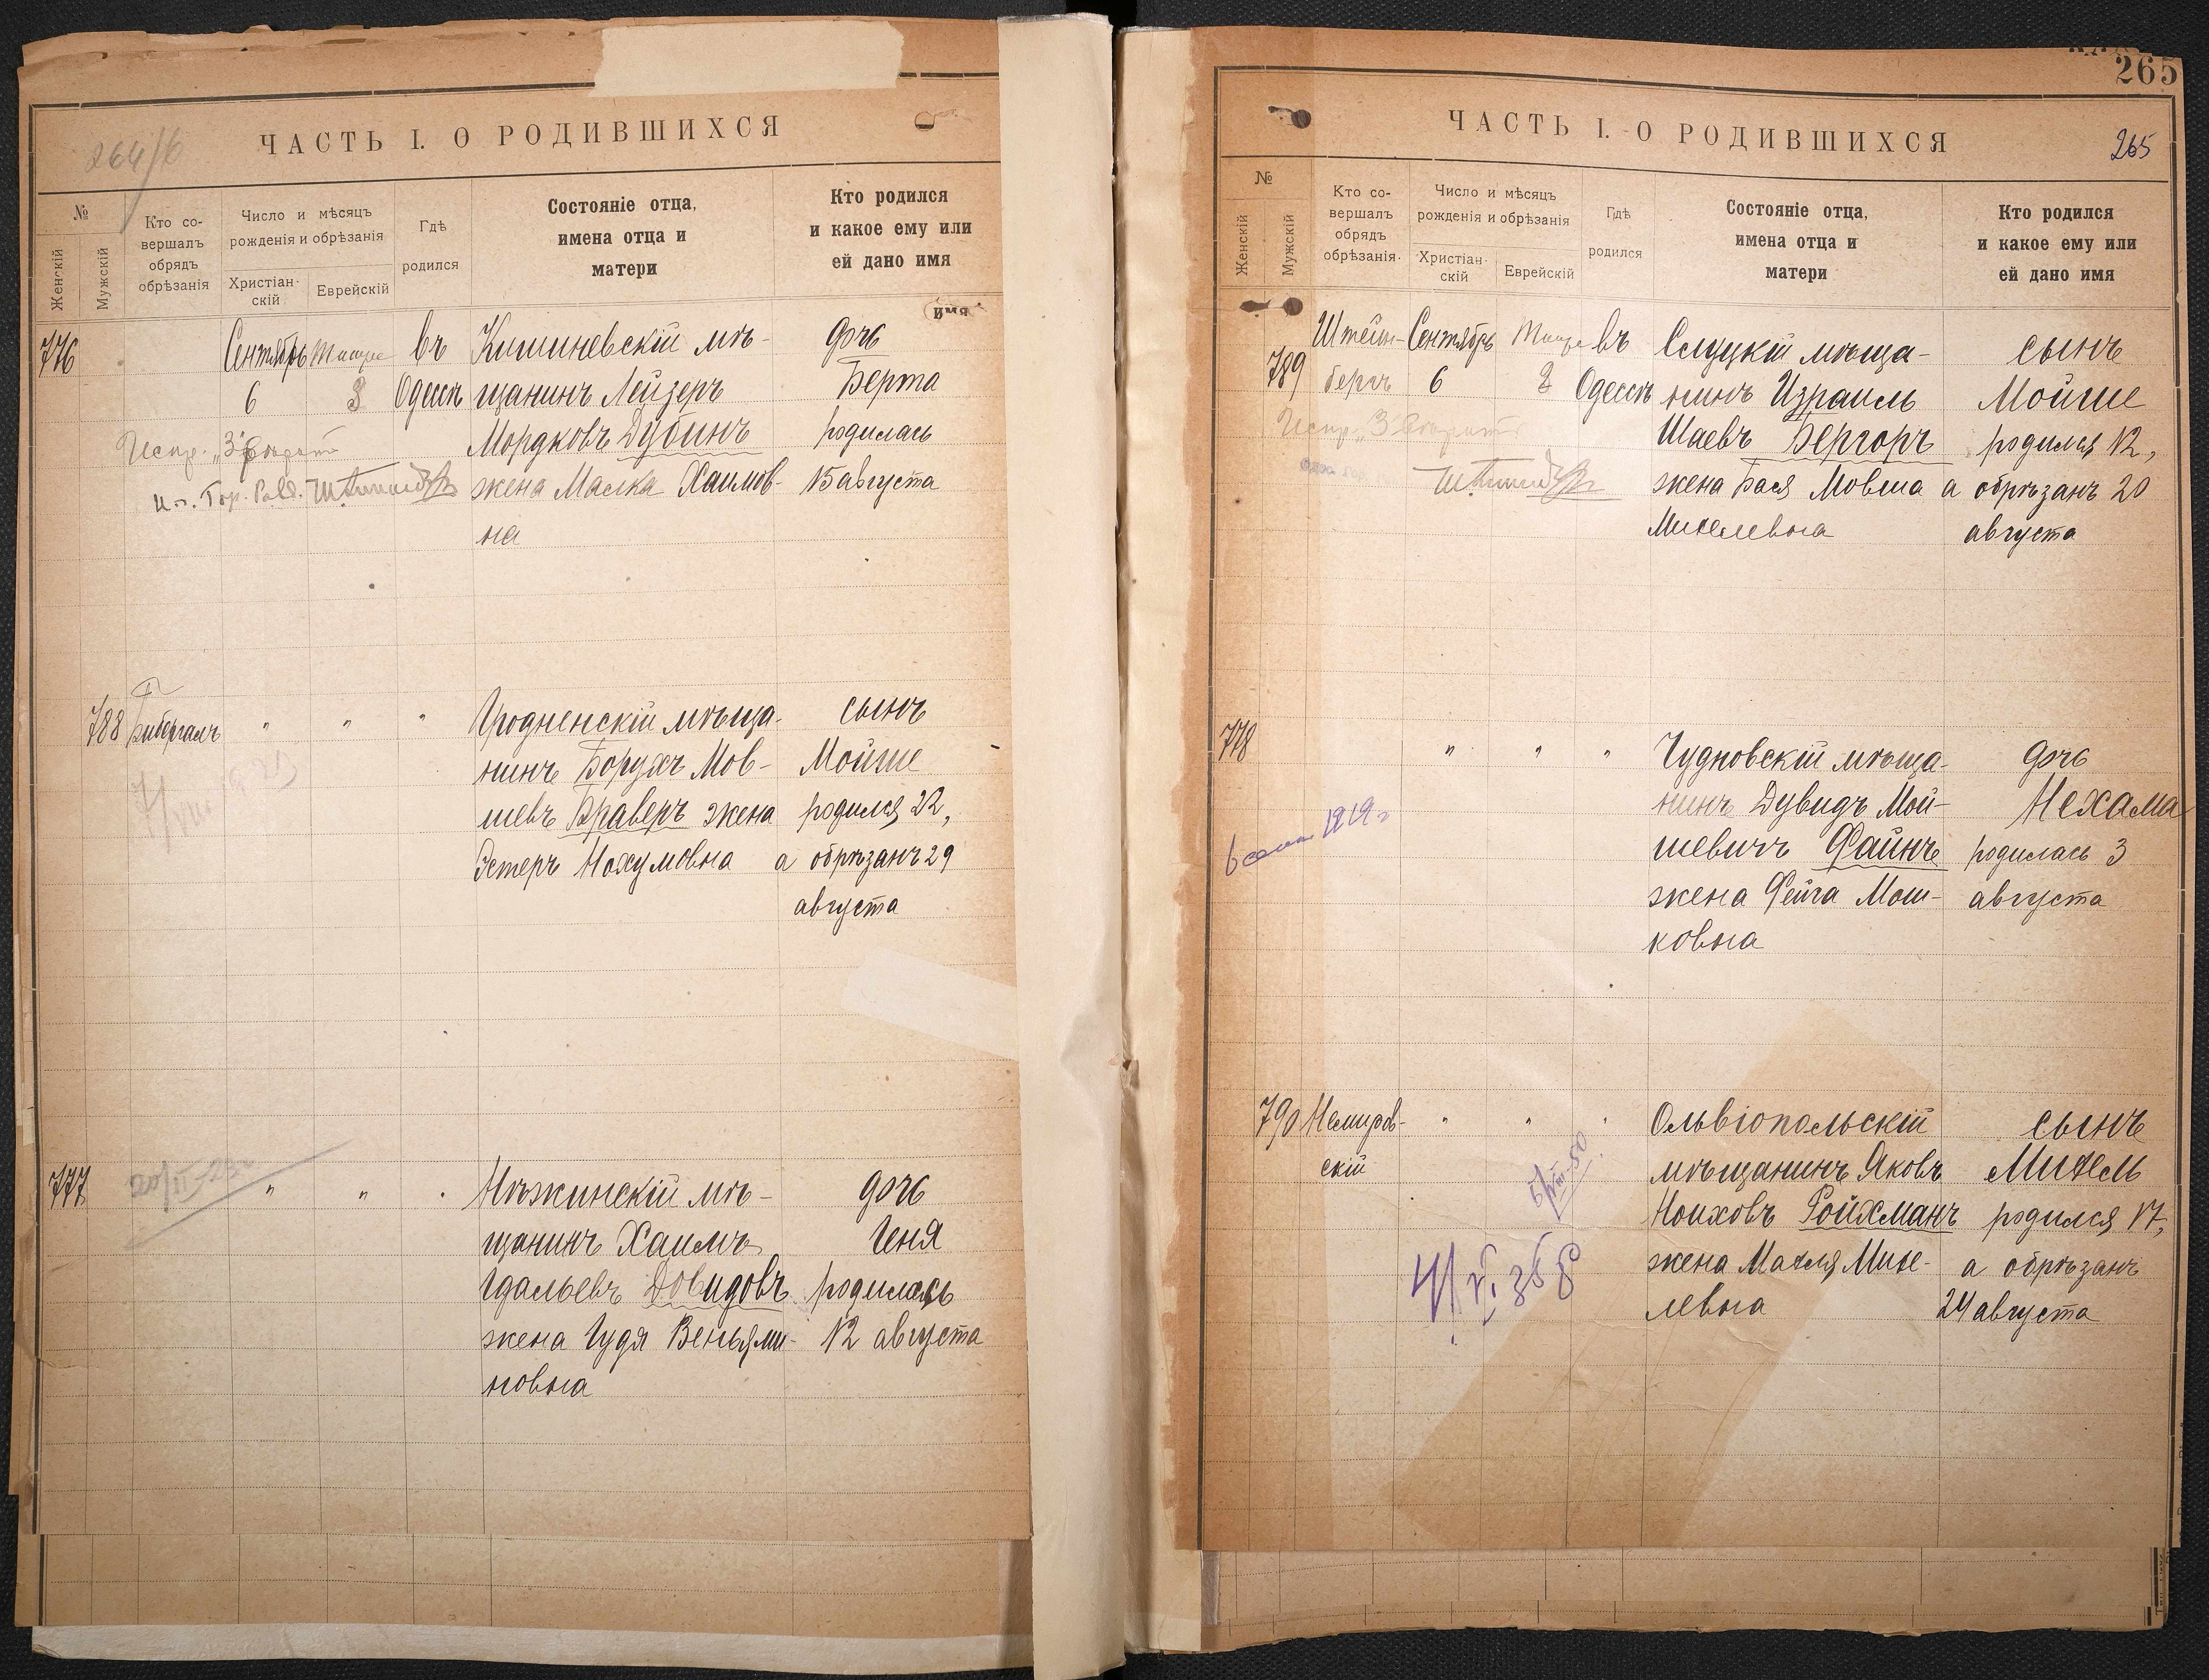 ЧАСТЬ I. О РОДИВШИХСЯ
№
Женскій
Мужскій
Кто со-
вершалъ
обрядъ
обрѣзанія
Число и мѣсяцъ
рожденія и обрѣзанія
Христіан-
скій
Еврейскій
Гдѣ
родился
Состояніе отца,
имена отца и
матери
Кто родился
и какое ему или
ей дано имя
имя
776
Сентябрь
6
Тишре
3
въ
Одессѣ
Кишиневскій мѣ-
щанинъ Лейзеръ
Мордковъ Дубинъ
жена Малка Хаимов-
на
дочь
Берта
родилась
15 августа
Испр. „3"
788
"
"
"
Гродненскій мѣща-
нинъ Борухъ Мов-
шевъ Браверъ жена
Эстеръ Нохумовна
сынъ
Мойше
родился 22,
а обрѣзанъ 29
августа
777
"
"
"
Нѣжинскій мѣ-
щанинъ Хаимъ
Гдальевъ Довидовъ
жена Гудя Веньями-
новна
дочь
Геня
родилась
12 августа
265
ЧАСТЬ I. О РОДИВШИХСЯ
265
№
Женскій
Мужскій
Кто со-
вершалъ
обрядъ
обрѣзанія.
Число и мѣсяцъ
рожденія и обрѣзанія
Христіан-
скій
Еврейскій
Гдѣ
родился
Состояніе отца,
имена отца и
матери
Кто родился
и какое ему или
ей дано имя
789
Штейн-
бергъ
Сентябрь
6
Тишре
въ
Одессѣ
Слуцкій мѣща-
нинъ Израиль
Шаевъ Бергоръ
жена Бася Мовша
Михелевна
сынъ
Мойше
родился 12,
а обрѣзанъ 20
августа
Испр. „3"
778
"
"
"
Чудновскій мѣща-
нинъ Дувидъ Мой-
шевичъ Файнъ
жена Фейга Мош-
ковна
дочь
Нехама
родилась 3
августа
1919 г
790
Немиров-
скій
"
"
"
Ольвіопольскій
мѣщанинъ Яковъ
Ноиховъ Ройхманъ
жена Махля Михе-
левна
сынъ
Михель
родился 17,
а обрѣзанъ
24 августа